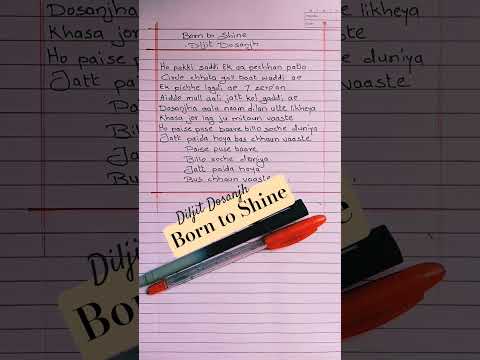 Born to Shine
- Diljit Dosanjh
Ho pakki saddi Ek aa pechhan patlo
Circle chhota goll baat waddi ae
Ek pichhe lagdi ae 7 serpan
Aidde mull aali jatt kol gaddi ae
Dosanjha aala naam dilan utte likheya
Khasa jor lag ju mitaun vaaste
Ho paise puse baare billo soche duniya
Jatt paida hoya bas chhaun vaaste
Paise puse baare
Billo soche duniya
Jatt paida hoya
Bus chhaun vaaste
Diljit Dosanjh
Born to Shine